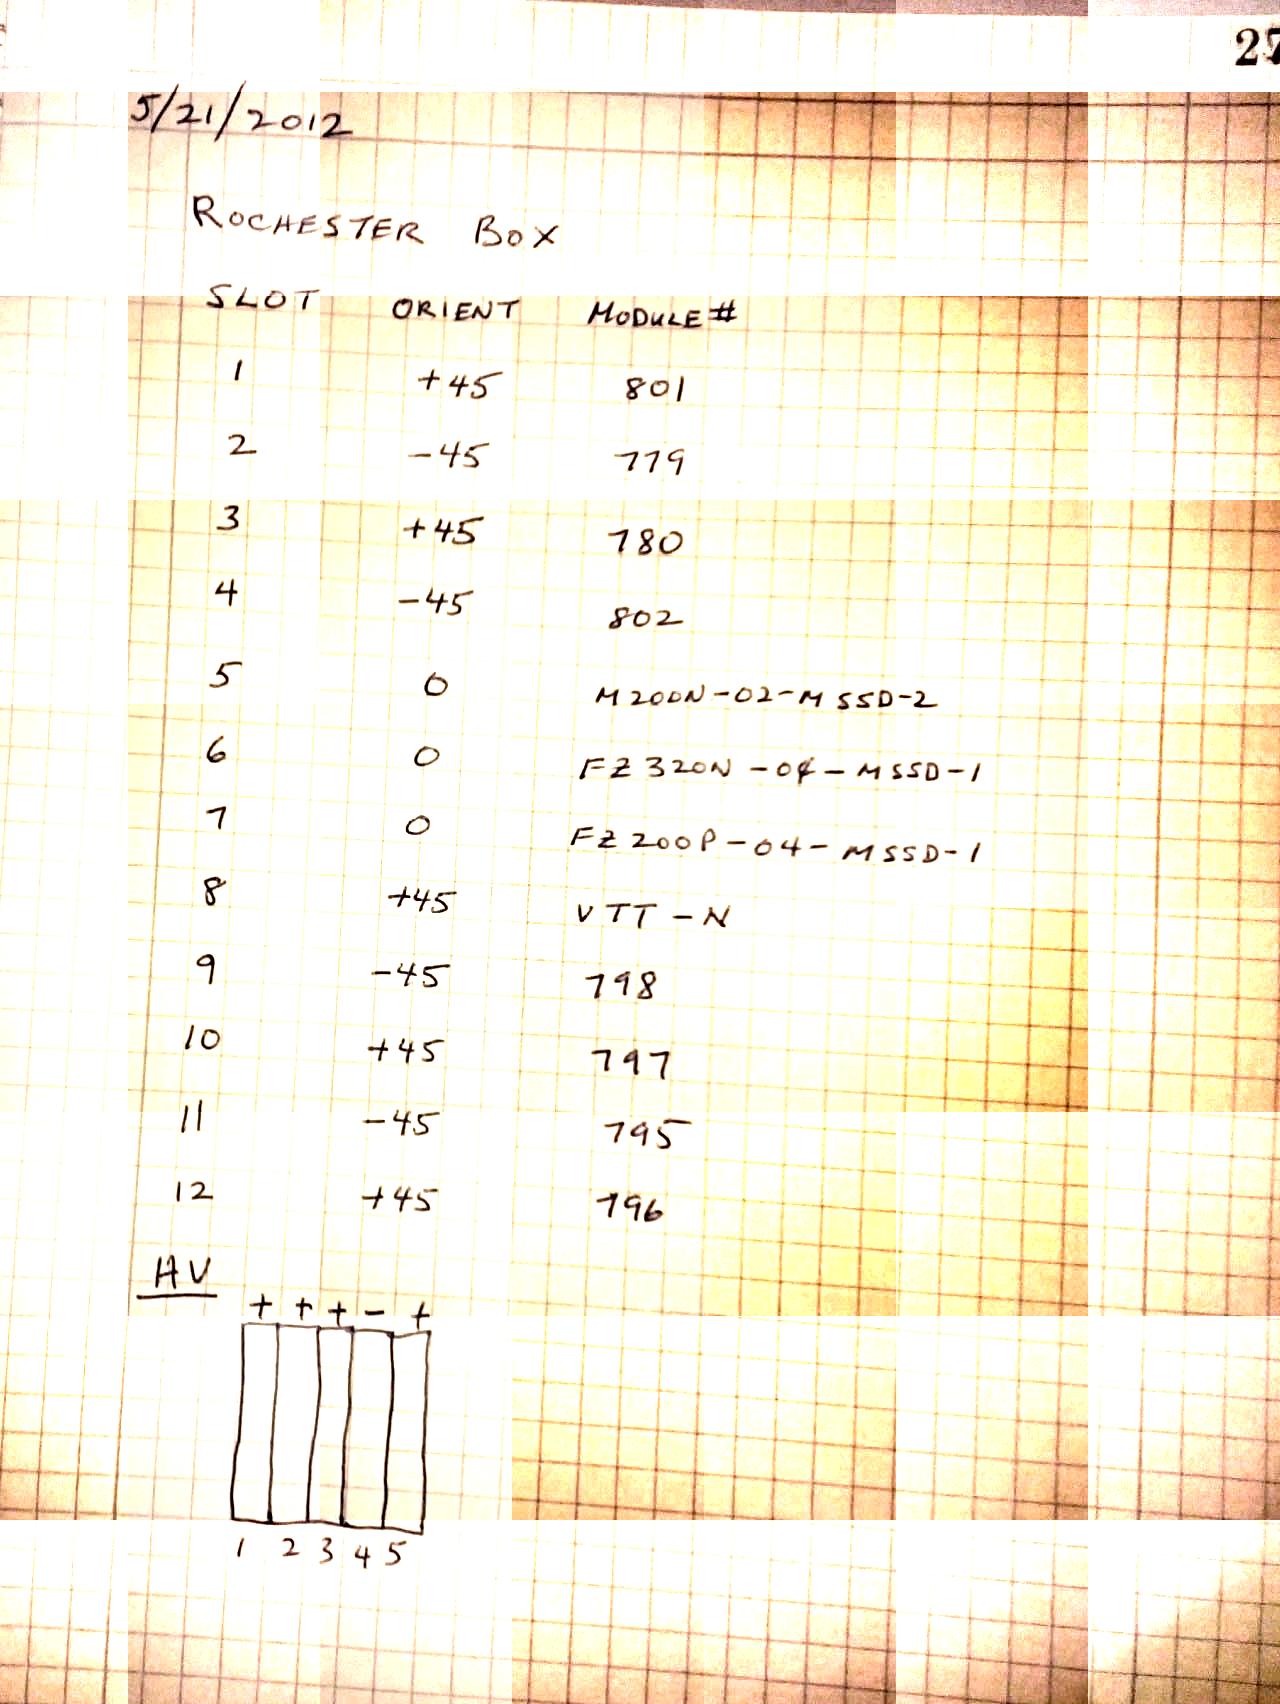 27
5/21/2012
ROCHESTER BOX
SLOT ORIENT MODULE#
1 +45 801
2 -45 779
3 +45 780
4 -45 802
5 0 M200N-02-MSSD-2
6 0 FZ320N-04-MSSD-1
7 0 FZ200P-04-MSSD-1
8 +45 VTT-N
9 -45 798
10 +45 797
11 -45 795
12 +45 796
HV
+ + + - +
1 2 3 4 5